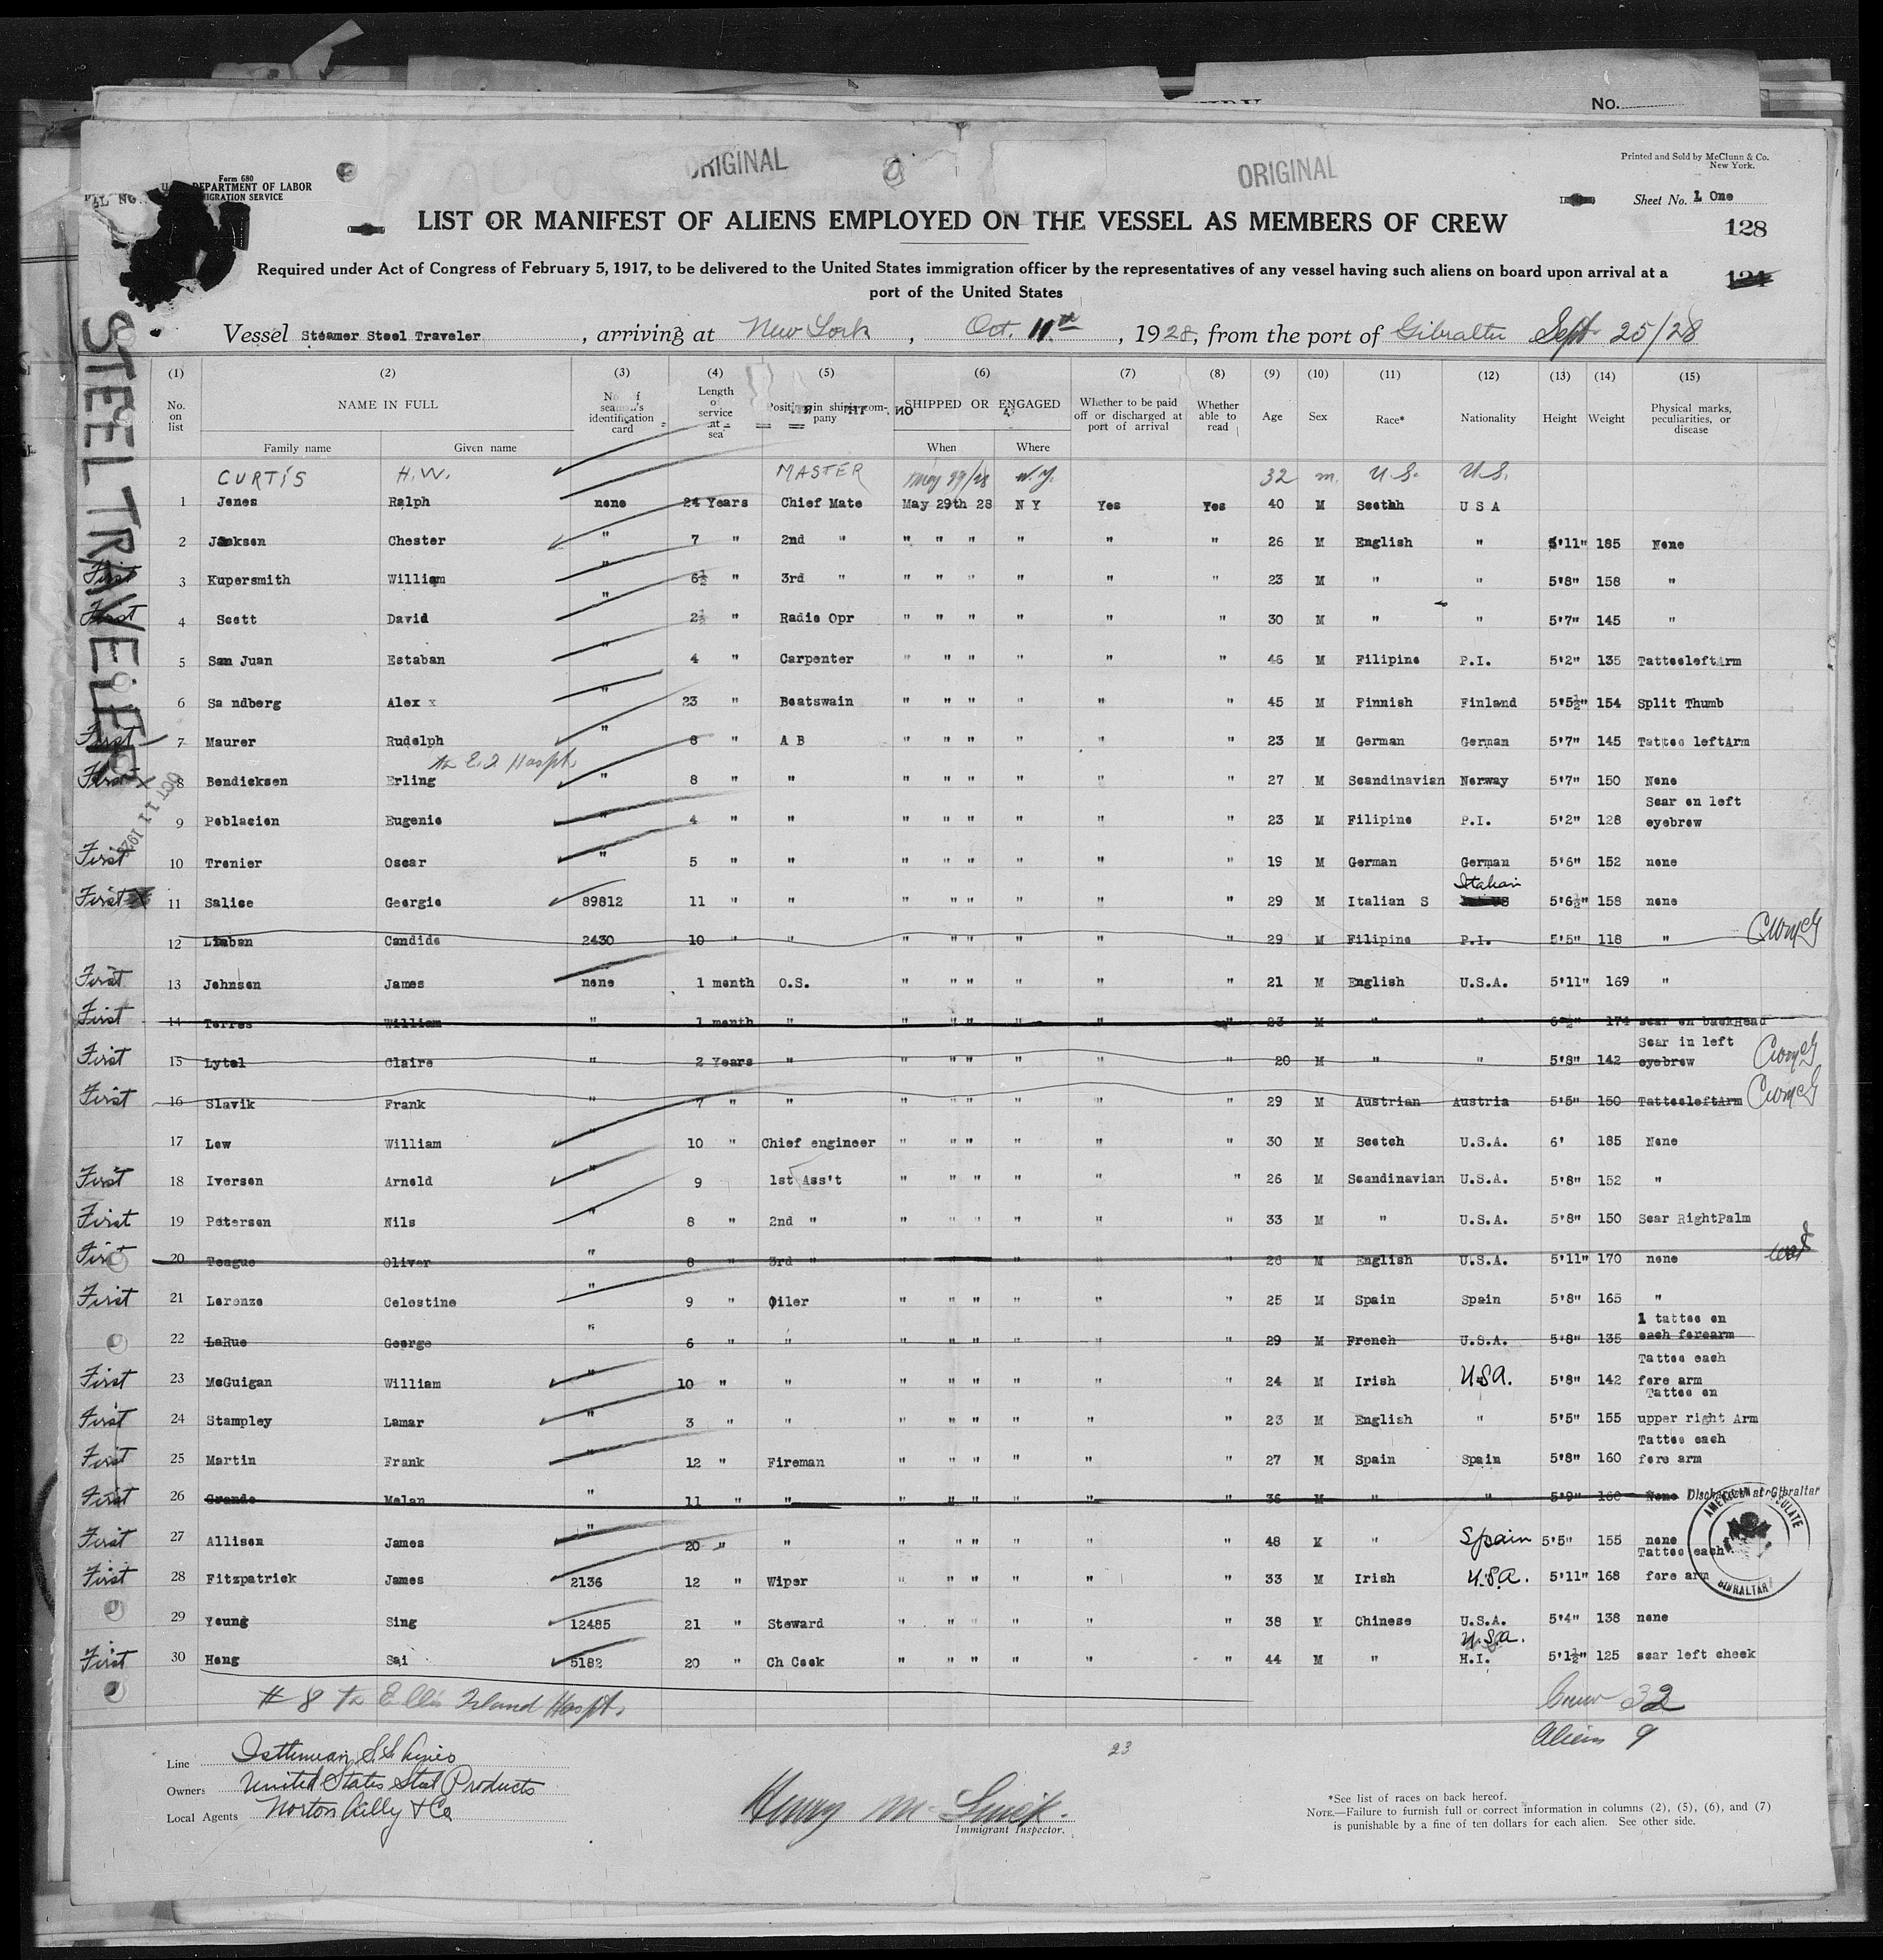 No.
ORIGINAL
ORIGINAL
Printed and Sold by McClunn & Co.
New York.
Form 680
DEPARTMENT OF LABOR
IGRATION SERVICE
Sheet No. 1 One
LIST OR MANIFEST OF ALIENS EMPLOYED ON THE VESSEL AS MEMBERS OF CREW
128
Required under Act of Congress of February 5, 1917, to be delivered to the United States immigration officer by the representatives of any vessel having such aliens on board upon arrival at a
124
port of the United States
STEEL TRAVELER
OCT 11 1928
Vessel Steamer Steel Traveler , arriving at New York , Oct. 11th , 1928, from the port of Gibralter Sept 25/28
(1) (2) (3) (4) (5) (6) (7) (8) (9) (10) (11) (12) (13) (14) (15)
No. on list NAME IN FULL Family name Given name No. of seaman's identification card Length of service at sea Position in ship's company SHIPPED OR ENGAGED When Where Whether to be paid off or discharged at port of arrival Whether able to read Age Sex Race* Nationality Height Weight Physical marks, peculiarities, or disease
CURTIS H.W. MASTER May 29/28 N.Y. 32 m. U.S. U.S.
1 Jones Ralph none 24 Years Chief Mate May 29th 28 N Y Yes Yes 40 M Scothh U S A
2 Jackson Chester " 7 " 2nd " " " " " " " 26 M English " 5'11" 185 None
First 3 Kupersmith William " 6½ " 3rd " " " " " " " 23 M " " 5'8" 158 "
First 4 Scott David " 2½ " Radio Opr " " " " " " 30 M " " 5'7" 145 "
5 San Juan Estaban " 4 " Carpenter " " " " " " 46 M Filipino P.I. 5'2" 135 TattooleftArm
6 Sa ndberg Alex x " 23 " Boatswain " " " " " " 45 M Finnish Finland 5'5½" 154 Split Thumb
First 7 Maurer Rudolph " 8 " A B " " " " " " 23 M German German 5'7" 145 Tattoo leftArm
to E.I Hospt.
First x 8 Bendicksen Erling " 8 " " " " " " " " 27 M Scandinavian Norway 5'7" 150 None
9 Poblacion Eugenio " 4 " " " " " " " " 23 M Filipino P.I. 5'2" 128 Scar on left eyebrow
First 10 Trenier Oscar " 5 " " " " " " " " 19 M German German 5'6" 152 none
First 11 Salice Georgio 89812 11 " " " " " " " " 29 M Italian S Italian 5'6½" 158 none
12 Liaban Candido 2430 10 " " " " " " " " 29 M Filipino P.I. 5'5" 118 "
First 13 Johnson James none 1 month O.S. " " " " " " 21 M English U.S.A. 5'11" 169 "
First 14 Torres William " 1 month " " " " " " " 23 M " " 6'½" 174 scar on backHead
First 15 Lytel Claire " 2 Years " " " " " " " 20 M " " 5'8" 142 Scar in left eyebrow
First 16 Slavik Frank " 7 " " " " " " " " 29 M Austrian Austria 5'5" 150 TattooleftArm
17 Low William " 10 " Chief engineer " " " " " " 30 M Scotch U.S.A. 6' 185 None
First 18 Iversen Arnold " 9 1st Ass't " " " " " " 26 M Scandinavian U.S.A. 5'8" 152 "
First 19 Petersen Nils " 8 " 2nd " " " " " " " 33 M " U.S.A. 5'8" 150 Scar RightPalm
First 20 Teague Oliver " 8 " 3rd " " " " " " " 26 M English U.S.A. 5'11" 170 none
First 21 Lorenzo Celestine " 9 " Oiler " " " " " " 25 M Spain Spain 5'8" 165 "
22 LaRue George " 6 " " " " " " " " 29 M French U.S.A. 5'8" 135 1 tattoo on each forearm
First 23 McGuigan William " 10 " " " " " " " " 24 M Irish U.S.A. 5'8" 142 Tattoo each fore arm
First 24 Stampley Lamar " 3 " " " " " " " " 23 M English " 5'5" 155 Tattoo on upper right Arm
First 25 Martin Frank " 12 " Fireman " " " " " " 27 M Spain Spain 5'8" 160 Tattoo each fore arm
First 26 Grande Melan " 11 " " " " " " " " 36 M " " 5'9" 160 None Discharged at Gibraltar
First 27 Allison James " 20 " " " " " " " " 48 M " Spain 5'5" 155 none
First 28 Fitzpatrick James 2136 12 " Wiper " " " " " " 33 M Irish U.S.A. 5'11" 168 Tattoo each fore arm
29 Young Sing 12485 21 " Steward " " " " " " 38 M Chinese U.S.A. 5'4" 138 none
First 30 Hong Sai 5182 20 " Ch Cook " " " " " " 44 M " U.S.A. H.I. 5'1½" 125 scar left cheek
AMERICAN CONSULATE GIBRALTAR
# 8 to Ellis Island Hospt. Crew 32
Aliens 9
23
Line Isthmian S.S. Lines
Owners United States Steel Products
Local Agents Norton Lilly & Co
Immigrant Inspector.
*See list of races on back hereof.
NOTE.—Failure to furnish full or correct information in columns (2), (5), (6), and (7)
is punishable by a fine of ten dollars for each alien. See other side.